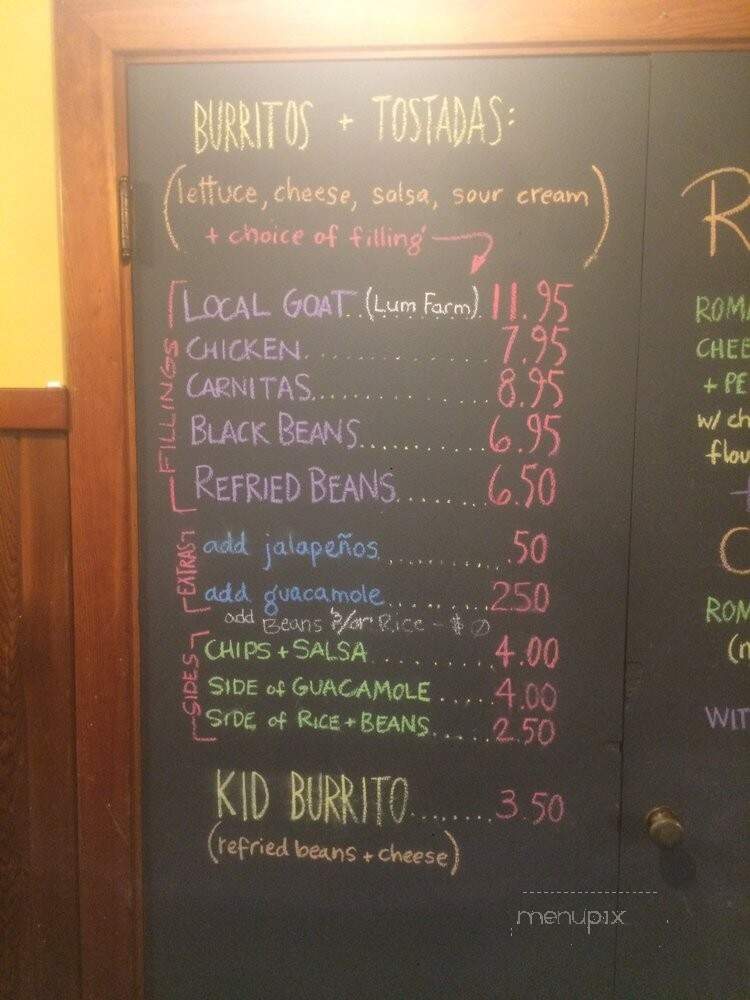 BURRITOS + TOSTADAS:
(lettuce, cheese, salsa, sour cream
+ choice of filling)
FILLINGS
LOCAL GOAT..(Lum Farm). 11.95
CHICKEN............ 7.95
CARNITAS........... 8.95
BLACK BEANS........ 6.95
REFRIED BEANS....... 6.50
EXTRAS
add jalapeños......... .50
add guacamole....... 2.50
add Beans &/or Rice - $ 0
SIDES
CHIPS + SALSA ........ 4.00
SIDE of GUACAMOLE ..... 4.00
SIDE of RICE + BEANS..... 2.50
KID BURRITO........ 3.50
(refried beans + cheese)
R
ROMA
CHEE
+ PE
w/ ch
flou
C
ROM
WIT
menupix